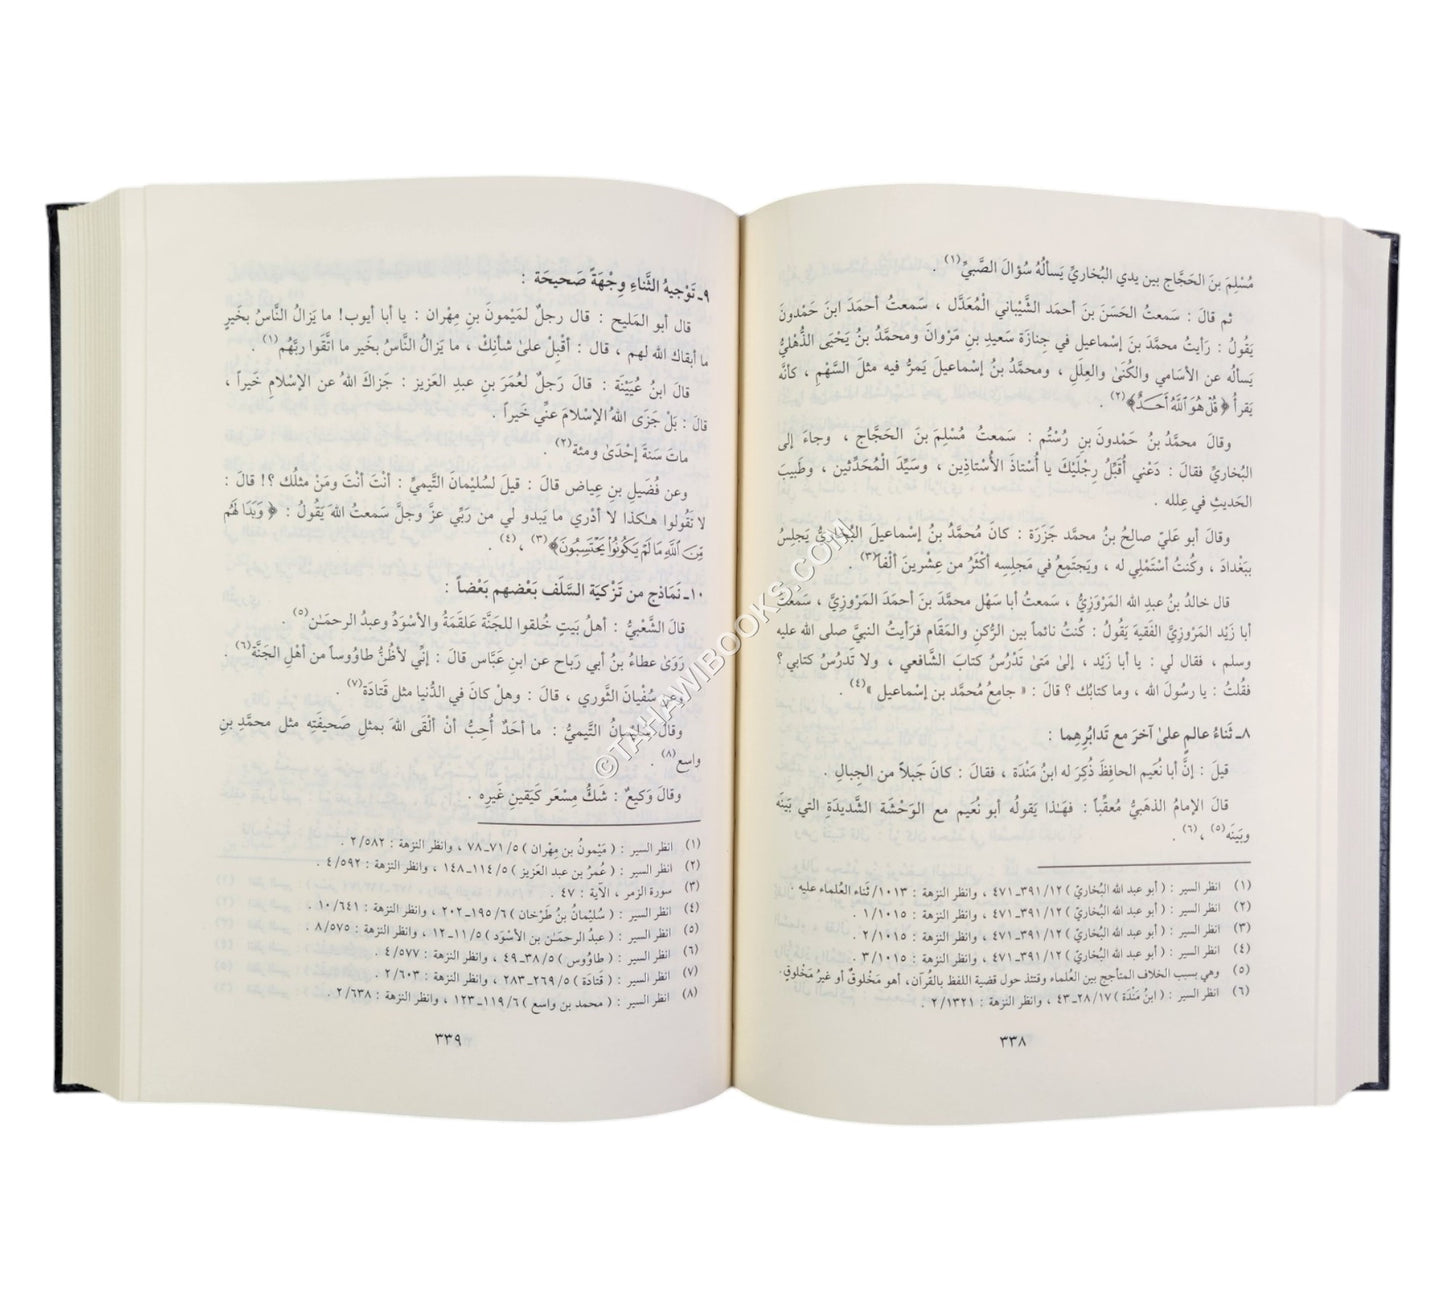 مُسْلِمَ بنَ الحَجَّاج بين يدي البُخاريِّ يَسألُهُ سُؤالَ الصَّبيِّ(١) .
ثم قالَ : سَمعتُ الحَسَنَ بنَ أحمَد الشَّيْباني الْمُعَدَّل ، سَمعتُ أحمَدَ ابنَ حَمْدونَ
يَقولُ : رَأيتُ محمَّدَ بنَ إسْماعيل في جِنازة سَعيدِ بنِ مَرْوانَ ومحمَّدُ بنُ يَحْيَى الذُّهْليُّ
يَسألُه عن الأسَامي والكُنَىٰ والعِلَلِ ، ومحمَّدُ بنُ إسْماعيلَ يَمرُّ فيه مثلَ السَّهْمِ ، كأنَّه
يَقرأُ ﴿ قُلْ هُوَ ٱللَّهُ أَحَدٌ ﴾(٢) .
وقالَ محمَّدُ بنُ حَمْدونَ بنِ رُسْتُم : سَمعتُ مُسْلِمَ بنَ الحَجَّاج ، وجاءَ إلى
البُخاريِّ فقالَ : دَعْني أُقَبِّلُ رِجْلَيْكَ يا أُسْتاذَ الأُسْتاذِين ، وسَيِّدَ الْمُحَدِّثين ، وطَبيبَ
الحَديثِ في عِلله .
وقالَ أبو عَليّ صالحُ بنُ محمَّد جَزَرَة : كانَ مُحمَّدُ بنُ إسْماعيلَ البُخاريُّ يَجلِسُ
ببَغْدادَ ، وكُنتُ أسْتَمْلي له ، ويَجتَمِعُ في مَجلِسِه أكْثَرُ من عِشْرينَ ألْفاً(٣) .
قال خالدُ بنُ عبدِ الله المَرْوَزِيُّ ، سَمعتُ أبا سَهْل محمَّدَ بنَ أحمَدَ المَرْوزيَّ ، سَمعتُ
أبا زَيْد المَرْوزيَّ الفَقيهَ يَقولُ : كُنتُ نائماً بين الرُّكنِ والمَقَامِ فرَأيتُ النبيَّ صلى الله عليه
وسلم ، فقال لي : يا أبا زَيْد ، إلىٰ مَتىٰ تَدْرُسُ كتابَ الشَّافعي ، ولا تَدْرُسُ كتابي ؟
فقُلتُ : يا رسُولَ الله ، وما كتابُك ؟ قالَ : « جامعُ مُحمَّد بن إسْماعيل »(٤) .
٨ـ ثَناءُ عالمٍ علىٰ آخرَ مع تَدابُرِهِما :
قيلَ : إنَّ أبا نُعَيم الحافِظَ ذُكِرَ له ابنُ مَنْدَة ، فقالَ : كانَ جَبلاً من الجِبالِ .
قالَ الإمامُ الذهَبيُّ مُعقِّباً : فهَـٰذا يَقولُه أبو نُعَيم مع الوَحْشَة الشَّديدَةِ التي بَينَه
وبَينَه(٥) ، (٦) .
(١) انظر السير : ( أبو عبد الله البُخاريّ ) ١٢/٣٩١ـ٤٧١ ، وانظر النزهة : ١٠١٣/ ثَناء العُلماء عليه .
(٢) انظر السير : ( أبو عبد الله البُخاريّ ) ١٢/٣٩١ـ٤٧١ ، وانظر النزهة : ١/١٠١٥ .
(٣) انظر السير : ( أبو عبد الله البُخاريّ ) ١٢/٣٩١ـ٤٧١ ، وانظر النزهة : ٢/١٠١٥ .
(٤) انظر السير : ( أبو عبد الله البُخاريّ ) ١٢/٣٩١ـ٤٧١ ، وانظر النزهة : ٣/١٠١٥ .
(٥) وهي بسبب الخلاف المتأجج بين العُلماء وقتئذ حول قضية اللفظ بالقُرآن، أهو مَخْلوقٌ أو غيرُ مَخْلوقٍ.
(٦) انظر السير : ( ابنُ مَنْدَة ) ١٧/٢٨ـ٤٣ ، وانظر النزهة : ٢/١٣٢١ .
٣٣٨
٩ـ تَوْجيهُ الثَّناءِ وِجْهَةً صَحيحَة :
قال أبو المَليح : قال رجلٌ لمَيْمونَ بنِ مِهْران : يا أبا أيوب! ما يَزالُ النَّاسُ بخَيرٍ
ما أبقاك الله لهم ، قال : أقْبِلْ علىٰ شأنِكْ ، ما يَزالُ النَّاسُ بخَير ما اتَّقوا ربَّهُم(١) .
قالَ ابنُ عُيَيْنَة : قالَ رَجلٌ لعُمَرَ بنِ عبدِ العَزيز : جَزاكَ اللهُ عن الإسْلامِ خَيراً ،
قالَ : بَلْ جَزَى اللهُ الإسْلامَ عنِّي خَيراً .
ماتَ سَنةَ إحْدَىٰ ومئة(٢) .
وعن فُضَيلِ بنِ عِياض قالَ : قيلَ لسُليمانَ التَّيميِّ : أنْتَ أنْتَ ومَنْ مثلُك ؟! قالَ :
لا تَقُولوا هـٰكذا لا أدْري ما يَبدو لي من رَبِّي عزَّ وجلَّ سَمعتُ اللهَ يَقولُ : ﴿ وَبَدَا لَهُم
مِّنَ ٱللَّهِ مَا لَمْ يَكُونُوا۟ يَحْتَسِبُونَ ﴾(٣) ، (٤) .
١٠ـ نَمَاذج من تَزْكيَة السَّلَف بَعْضهم بَعْضاً :
قالَ الشَّعْبيُّ : أهلُ بَيتٍ خُلقوا للجَنَّة عَلقمَةُ والأسْوَدُ وعبدُ الرحمَـٰن(٥) .
رَوَىٰ عطاءُ بنُ أبي رَباح عن ابنِ عَبَّاس قالَ : إنِّي لأظُنُّ طاوُوساً من أهْلِ الجَنَّة(٦) .
وعن سُفْيانَ الثَّوري ، قالَ : وهلْ كانَ في الدُّنيا مثل قَتادَة(٧) .
وقالَ سُليمانُ التَّيميُّ : ما أحَدٌ أُحِبُّ أنْ ألْقَى اللهَ بمثلِ صَحيفَتِه مثل محمَّدِ بنِ
واسِع(٨) .
وقالَ وَكيعٌ : شَكُّ مِسْعَر كَيَقينِ غَيرِه .
(١) انظر السير : ( مَيْمونُ بن مِهْران ) ٥/٧١ـ٧٨ ، وانظر النزهة : ٢/٥٨٢ .
(٢) انظر السير : ( عُمرُ بن عبد العَزيز ) ٥/١١٤ـ١٤٨ ، وانظر النزهة : ٤/٥٩٢ .
(٣) سورة الزمر ، الآية : ٤٧ .
(٤) انظر السير : ( سُليْمانُ بنُ طَرْخان ) ٦/١٩٥ـ٢٠٢ ، وانظر النزهة : ١٠/٦٤١ .
(٥) انظر السير : ( عبدُ الرحمَـٰن بن الأسْوَد ) ٥/١١ـ١٢ ، وانظر النزهة : ٨/٥٧٥ .
(٦) انظر السير : ( طاوُوس ) ٥/٣٨ـ٤٩ ، وانظر النزهة : ٤/٥٧٧ .
(٧) انظر السير : ( قَتادَة ) ٥/٢٦٩ـ٢٨٣ ، وانظر النزهة : ٢/٦٠٣ .
(٨) انظر السير : ( محمد بن واسع ) ٦/١١٩ـ١٢٣ ، وانظر النزهة : ٢/٦٣٨ .
٣٣٩
©TAHAWIBOOKS.COM